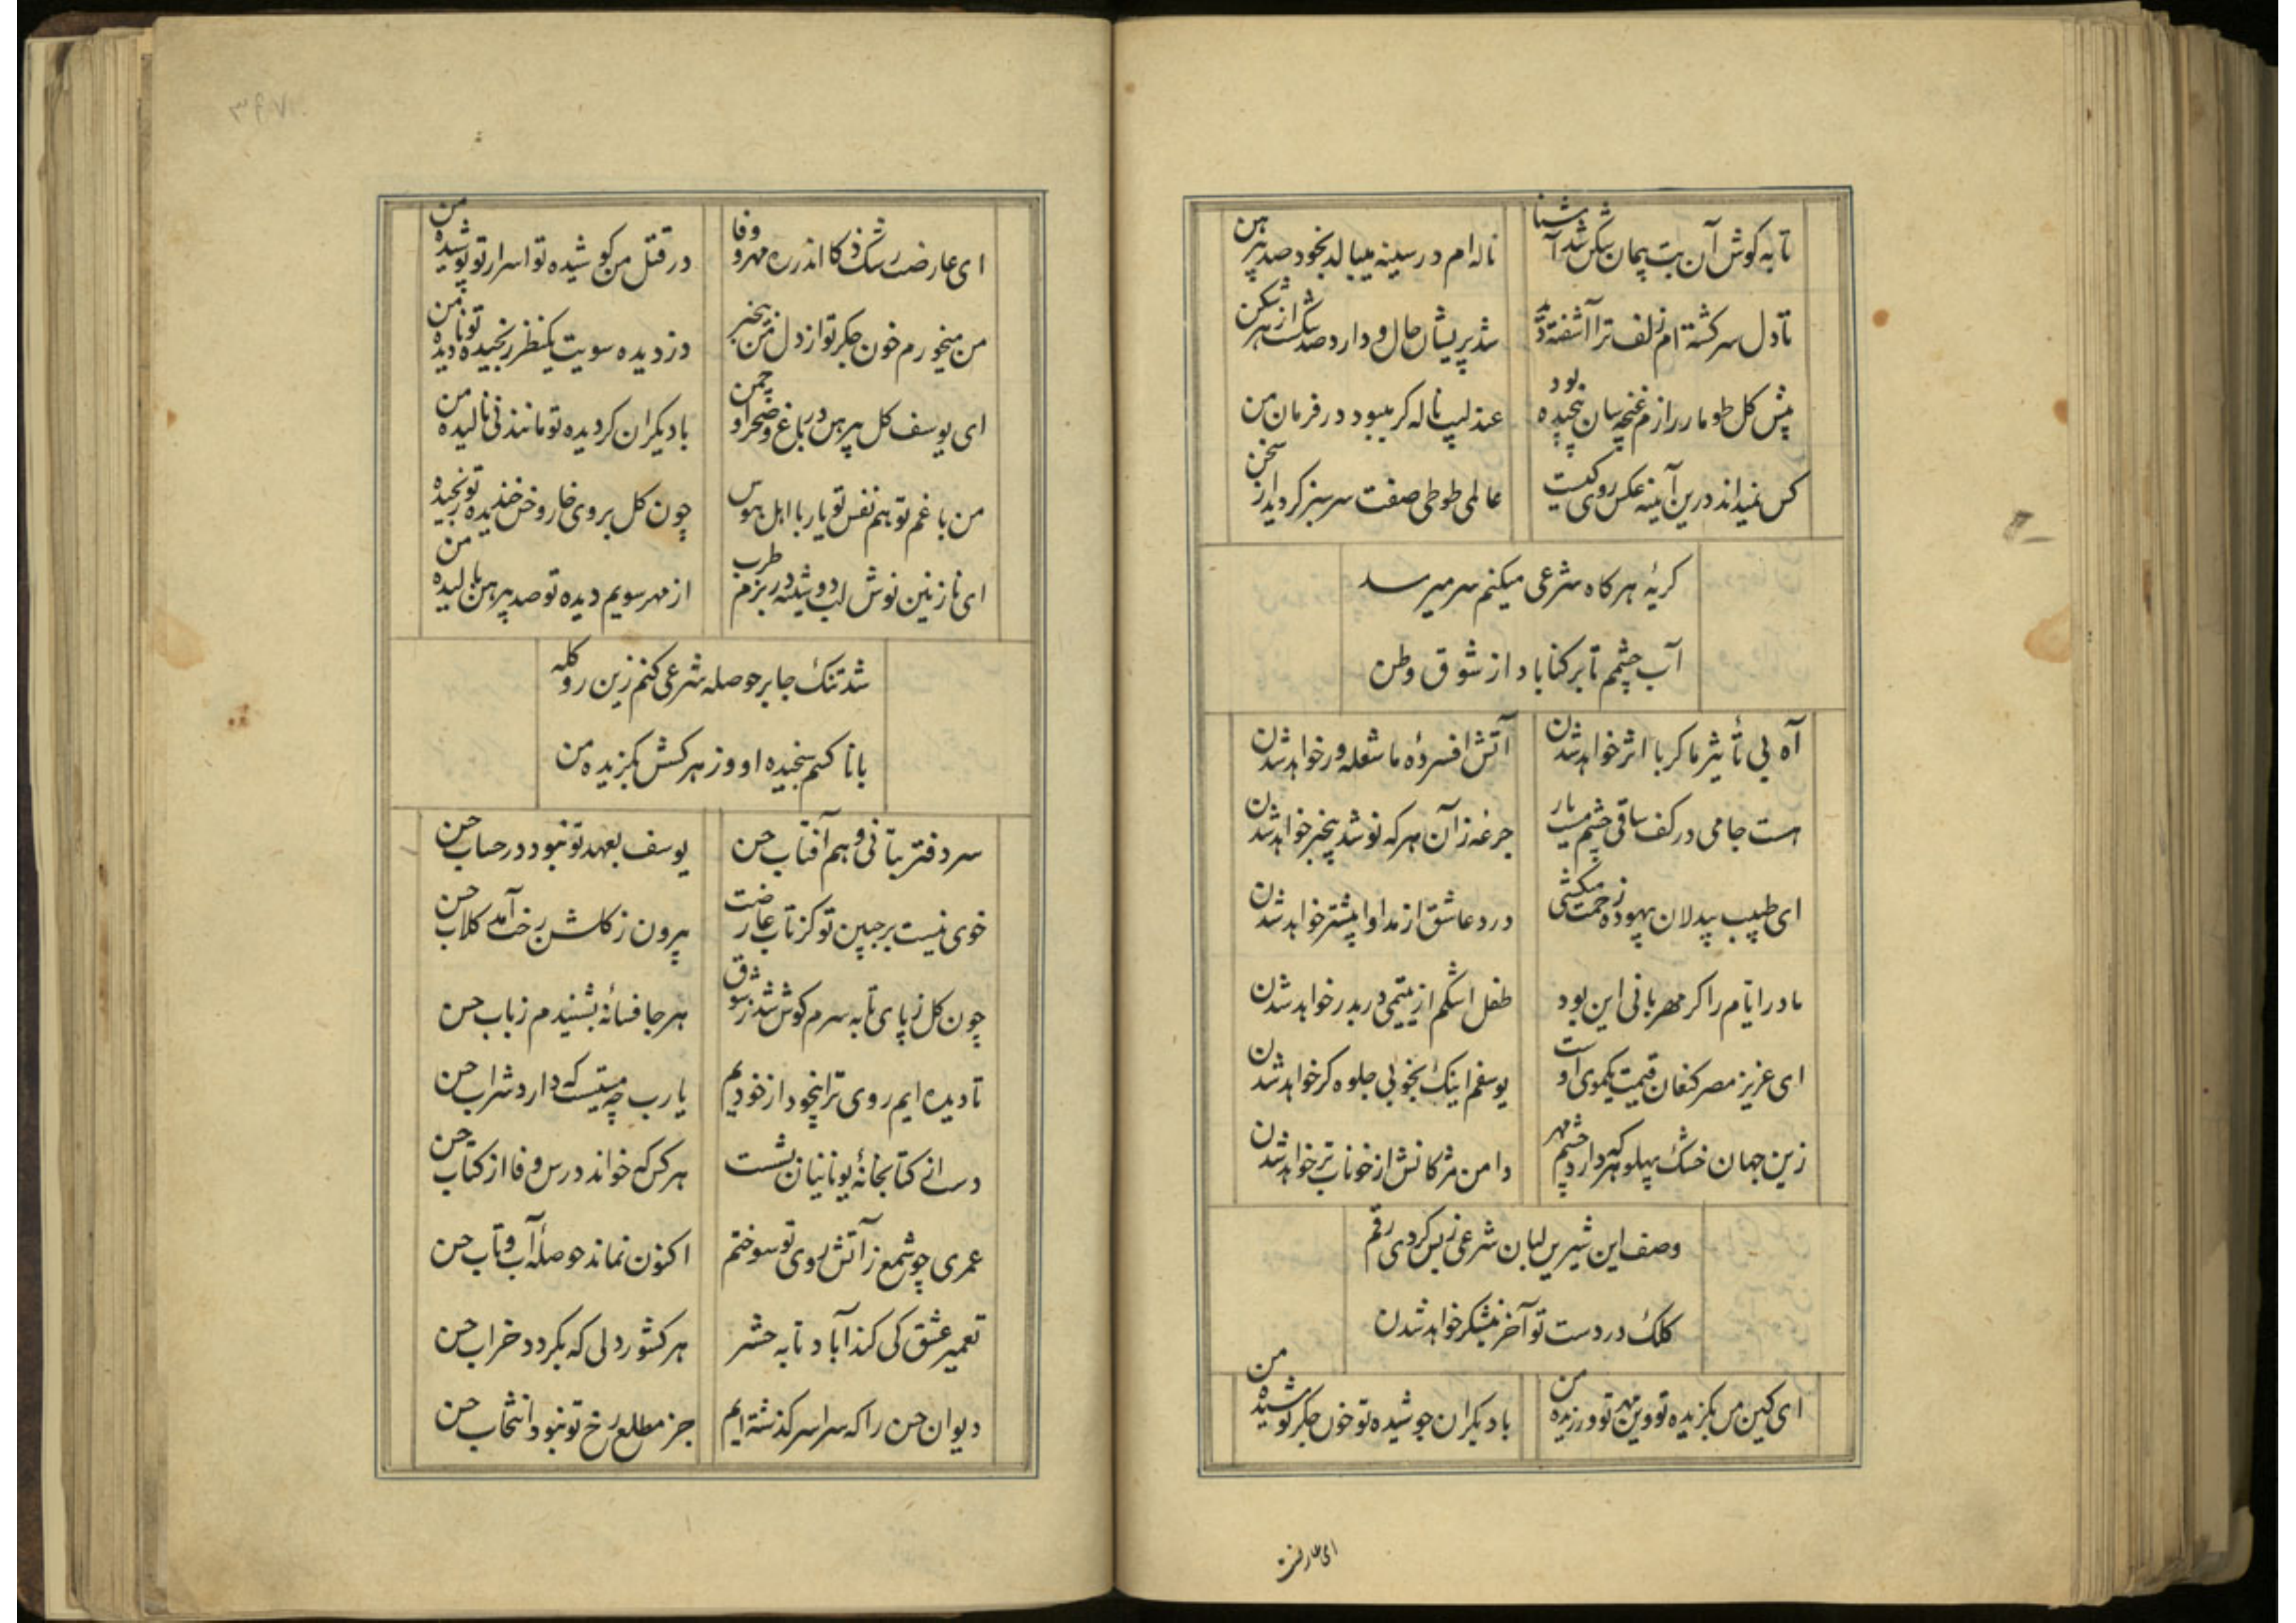 تا به کوش آن بت پیمان شکن شد آشنا
ناله ام در سینه میبالد بخود صد پیرهن
تا دل سرکشته ام زلف ترا آشفته شد
شد پریشان حال و دارد صد شکست از هر شکن
پیش کل طومار رازم غنچه سان پیچیده بود
عندلیب ناله کر میبود در فرمان من
کس نمیداند درین آیینه عکس روی کیست
عالمی طوطی صفت سرسبز کردید از سخن
کریهٔ هر کاه شرعی میکنم سر میرسد
آب چشمم تا برکناباد از شوق وطن
آه بی تأثیر ما کر با اثر خواهد شدن
آتش افسردهٔ ما شعله ور خواهد شدن
هست جامی در کف ساقی چشم مست یار
جرعه زان هر که نوشد بیخبر خواهد شدن
ای طبیب بیدلان بیهوده زحمت میکشی
درد عاشق از مداوا بیشتر خواهد شدن
مادر ایام را کر مهربانی این بود
طفل اشکم از یتیمی دربدر خواهد شدن
ای عزیز مصر کنعان قیمت یکموی اوست
یوسفم اینک بخوبی جلوه کر خواهد شدن
زین جهان خشک پهلو هر که دارد چشم مهر
دامن مژکانش از خوناب تر خواهد شدن
وصف این شیرین لبان شرعی ز بس کردی رقم
کلک در دست تو آخر نیشکر خواهد شدن
ای کین من بکزیده تو وین مهر تو ورزیده من
با دیکران جوشیده تو خون جکر نوشیده من
ای عارضت
ای عارضت رشک ذکا اندر ره مهر و وفا
در قتل من کوشیده تو اسرار تو پوشیده من
من میخورم خون جکر تو از دل من بیخبر
دزدیده سویت یکنظر رنجیده تو نادیده من
ای یوسف کل پیرهن در باغ و صحرا و چمن
با دیکران کردیده تو مانند نی نالیده من
من با غم تو هم نفس تو یار با اهل هوس
چون کل بروی خار و خس خندیده تو رنجیده من
ای نازنین نوش لب دوشینه در بزم طرب
از مهر سویم دیده تو صد پیرهن بالیده من
شد تنک جا بر حوصله شرعی کنم زین رو کله
با ناکسم سنجیده او وز هر کسش بکزیده من
سر دفتر بتانی و هم آفتاب حسن
یوسف بعهد تو نبود در حساب حسن
خوی نیست بر جبین تو کز تاب عارضت
بیرون ز کلشن رخت آمد کلاب حسن
چون کل ز پای تا به سرم کوش شد ز شوق
هر جا فسانهٔ بشنیدم ز باب حسن
تا دیده ایم روی ترا بیخود از خودیم
یارب چه مستیست که دارد شراب حسن
در کتابخانهٔ یونانیان نشست
هر کس که خواند درس وفا از کتاب حسن
عمری چو شمع ز آتش روی تو سوختم
اکنون نماند حوصلهٔ آب و تاب حسن
تعمیر عشق کی کند آباد تا به حشر
هر کشور دلی که بکردد خراب حسن
دیوان حسن را که سراسر کذشته ایم
جز مطلع رخ تو نبود انتخاب حسن